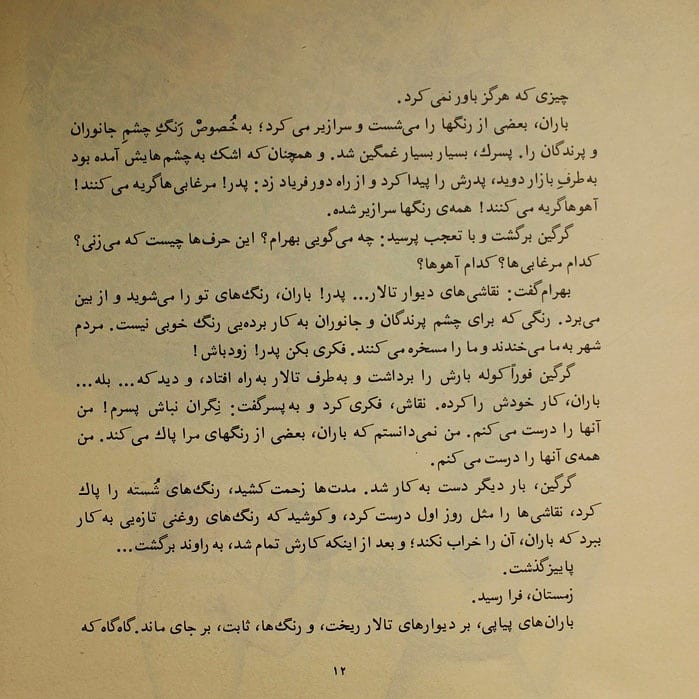 چیزی که هرگز باور نمی کرد.
باران، بعضی از رنگها را می‌شست و سرازیر می کرد؛ به خُصوصْ رَنگِ چشمِ جانوران
و پرندگان را. پسرك، بسیار بسیار غمگین شد. و همچنان که اشك به چشم‌هایش آمده بود
به طرفِ بازار دوید، پدرش را پیدا کرد و از راه دور فریاد زد: پدر! مرغابی‌ها گریه می کنند!
آهوها گریه می کنند! همه‌ی رنگها سرازیر شده.
گرگین برگشت و با تعجب پرسید: چه می‌گویی بهرام؟ این حرف‌ها چیست که می‌زنی؟
کدام مرغابی‌ها؟ کدام آهوها؟
بهرام گفت: نقاشی‌های دیوار تالار... پدر! باران، رنگ‌های تو را می‌شوید و از بین
می‌برد. رنگی که برای چشم پرندگان و جانوران به کار برده‌یی رنگ خوبی نیست. مردم
شهر به ما می‌خندند و ما را مسخره می کنند. فکری بکن پدر! زودباش!
گرگین فوراً کوله بارش را برداشت و به‌طرف تالار به راه افتاد، و دید که... بله...
باران، کار خودش را کرده. نقاش، فکری کرد و به پسر گفت: نِگران نباش پسرم! من
آنها را درست می کنم. من نمی‌دانستم که باران، بعضی از رنگهای مرا پاك می کند. من
همه‌ی آنها را درست می کنم.
گرگین، بار دیگر دست به کار شد. مدت‌ها زحمت کشید، رنگ‌های شُسته را پاك
کرد، نقاشی‌ها را مثل روز اول درست کرد، و کوشید که رنگ‌های روغنی تازه‌یی به کار
ببرد که باران، آن را خراب نکند؛ و بعد از اینکه کارش تمام شد، به راوند برگشت...
پاییز گذشت.
زمستان، فرا رسید.
باران‌های پیاپی، بر دیوارهای تالار ریخت، و رنگ‌ها، ثابت، بر جای ماند. گاه‌گاه که
۱۲